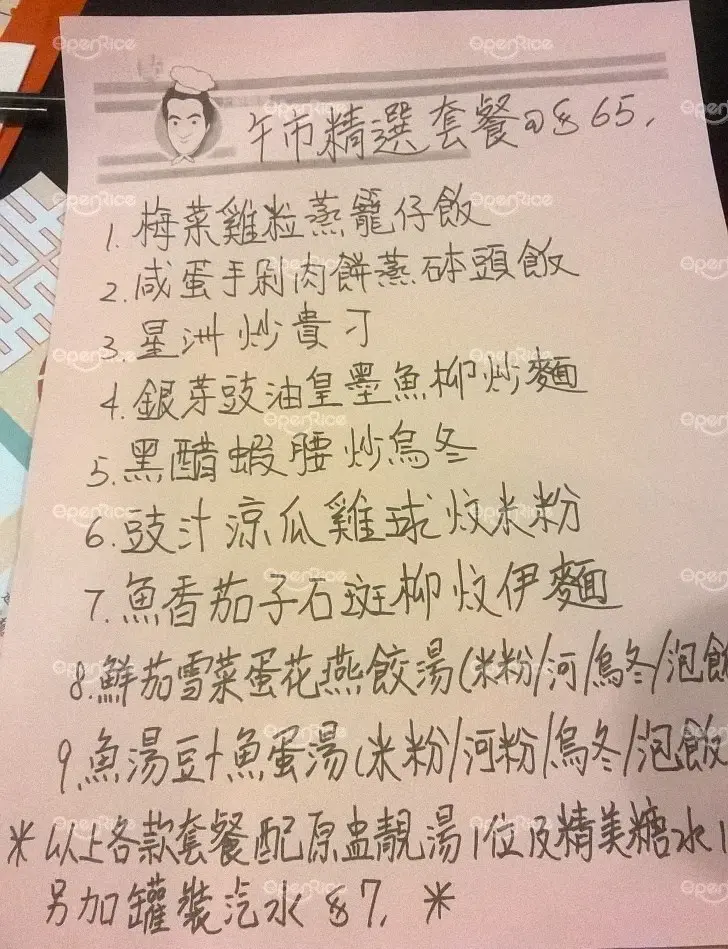 午市精選套餐@$65.
1. 梅菜雞粒蒸籠仔飯
2. 咸蛋手剁肉餅蒸砵頭飯
3. 星洲炒貴刁
4. 銀芽豉油皇墨魚柳炒麵
5. 黑醋蝦腰炒烏冬
6. 豉汁涼瓜雞球炆米粉
7. 魚香茄子石斑柳炆伊麵
8. 鮮茄雪菜蛋花燕餃湯(米粉/河/烏冬/泡飯
9. 魚湯豆卜魚蛋湯(米粉/河粉/烏冬/泡飯
*以上各款套餐配原盅靚湯1位及精美糖水1
另加罐裝汽水$7. *